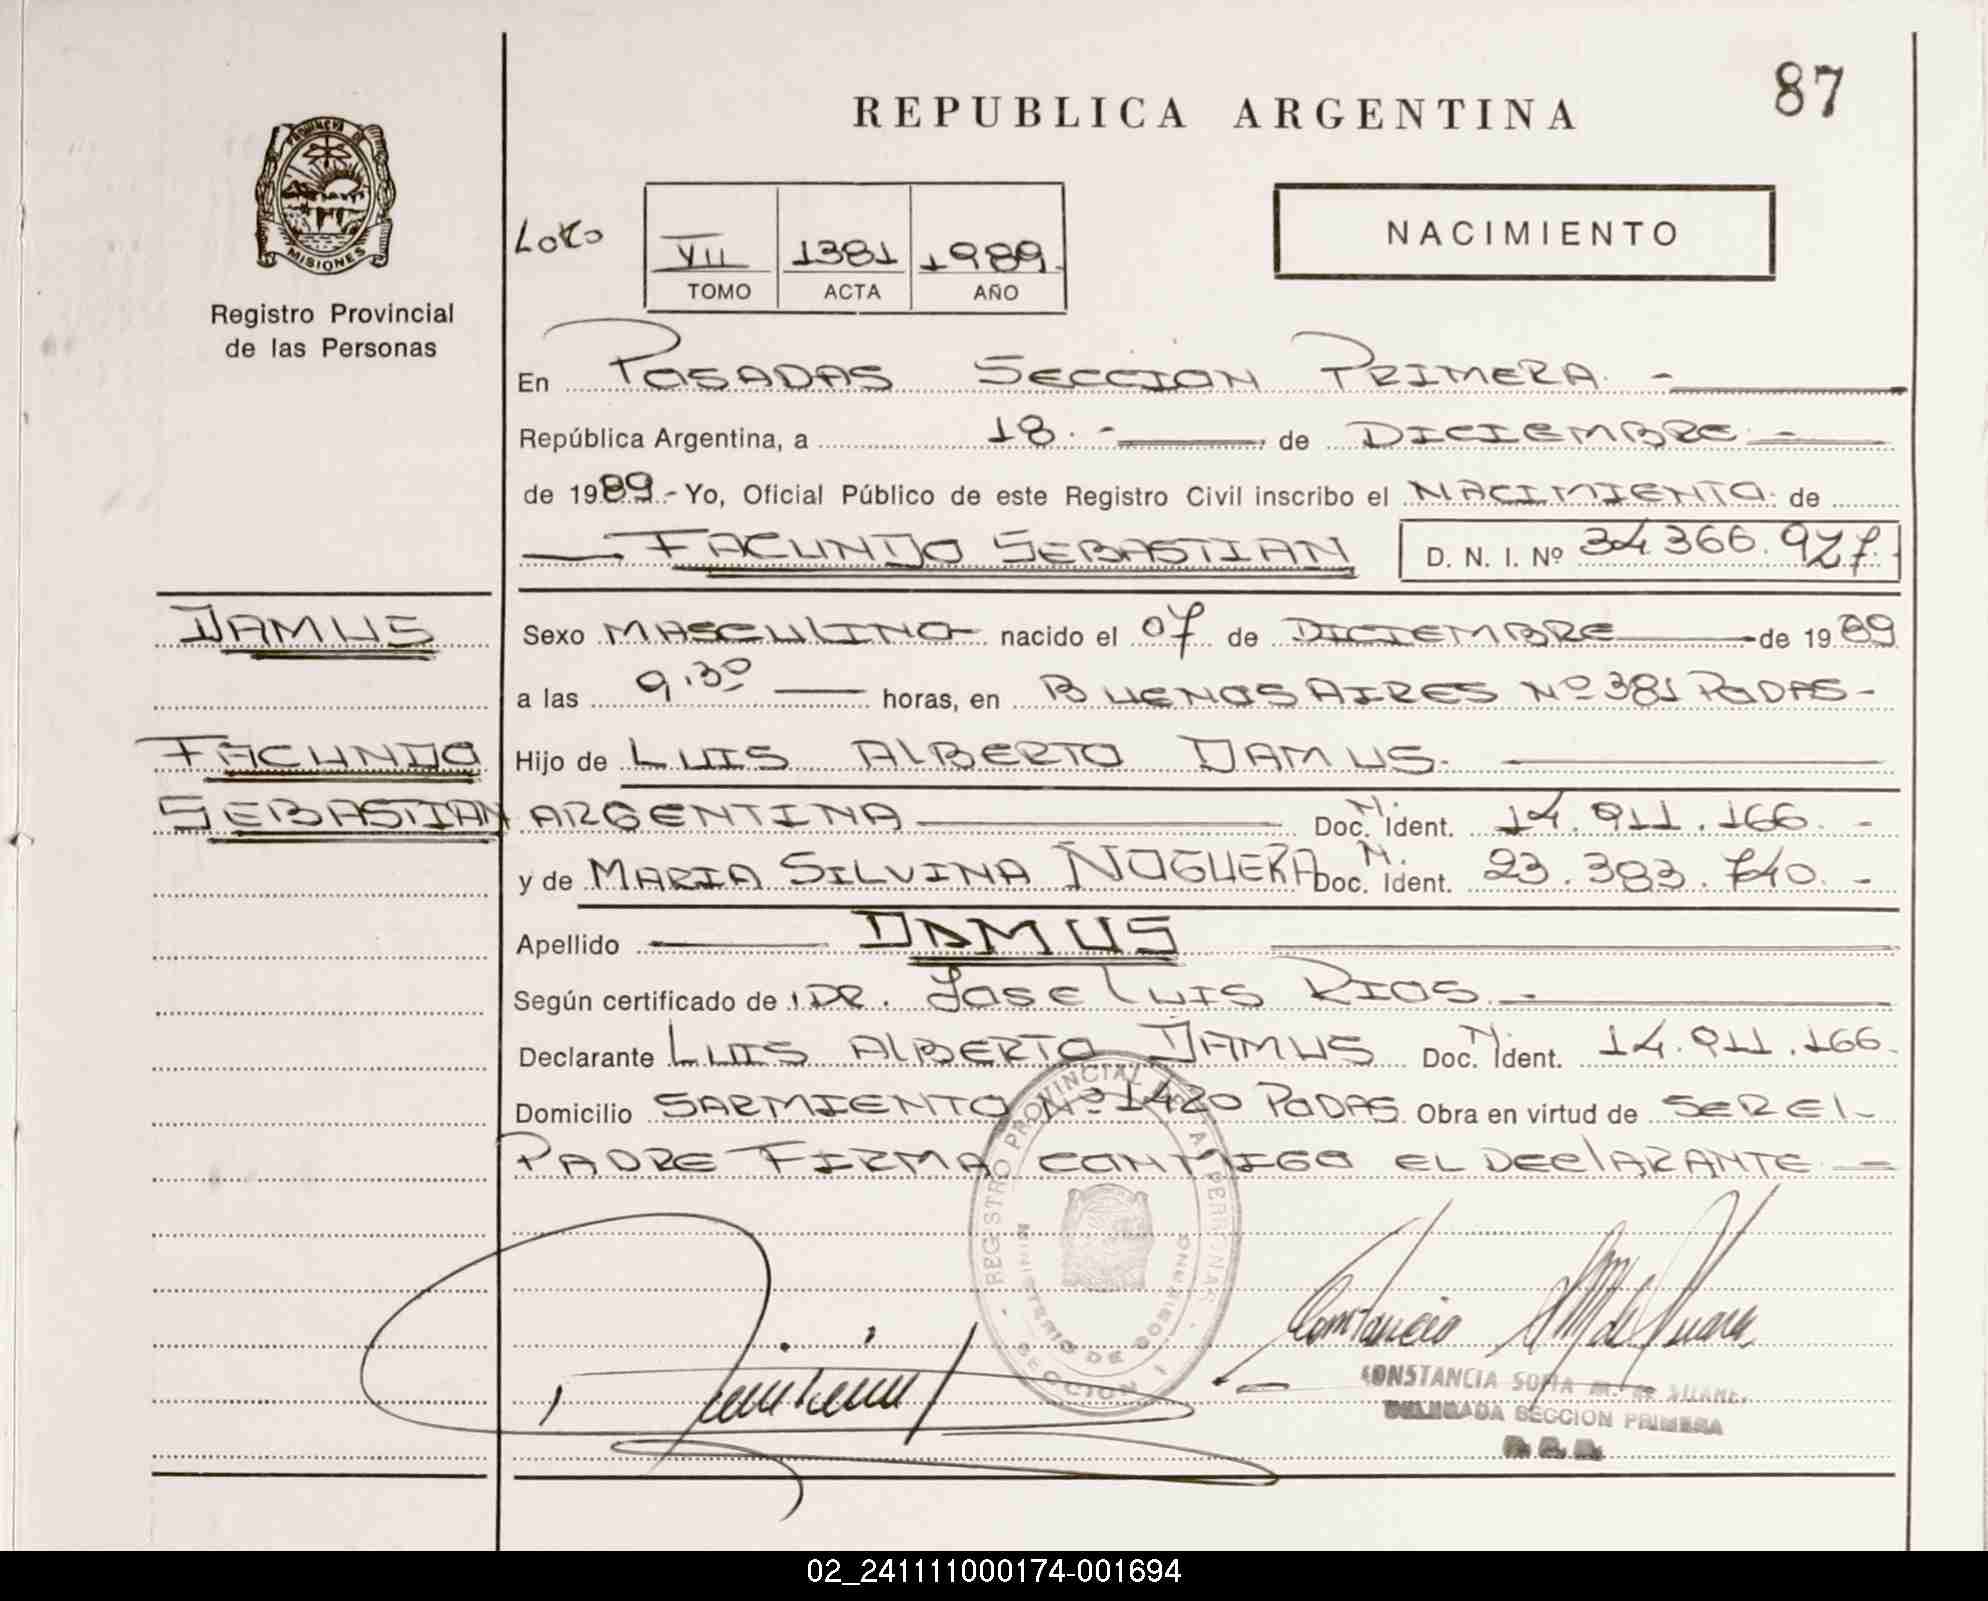 87
REPUBLICA ARGENTINA
PROVINCIA DE
MISIONES
Registro Provincial
de las Personas
VII 1381 1989
TOMO ACTA AÑO
NACIMIENTO
En POSADAS SECCION PRIMERA.-
República Argentina, a 18.- de DICIEMBRE-
de 1989.- Yo, Oficial Público de este Registro Civil inscribo el NACIMIENTO. de
FACUNDO SEBASTIAN D. N. I. Nº 34.366.927.
DAMUS
FACUNDO
SEBASTIAN
Sexo MASCULINO nacido el 07 de DICIEMBRE de 1989
a las 9.30 horas, en BUENOS AIRES Nº 381 PODAS-
Hijo de LUIS ALBERTO DAMUS.
ARGENTINA Doc. N. Ident. 14.911.166.-
y de MARIA SILVINA NOGUERA Doc. N. Ident. 23.383.740.-
Apellido DAMUS
Según certificado de DR. JOSE LUIS RIOS.-
Declarante LUIS ALBERTO DAMUS Doc. N. Ident. 14.911.166-
Domicilio SARMIENTO Nº 1420 PODAS. Obra en virtud de SER EL
PADRE FIRMA CONMIGO EL DECLARANTE
REGISTRO PROVINCIAL DE LAS PERSONAS
MINISTERIO DE GOBIERNO
SECCION I
CONSTANCIA SOFIA M. DE
DELEGADA SECCION PRIMERA
02_241111000174-001694